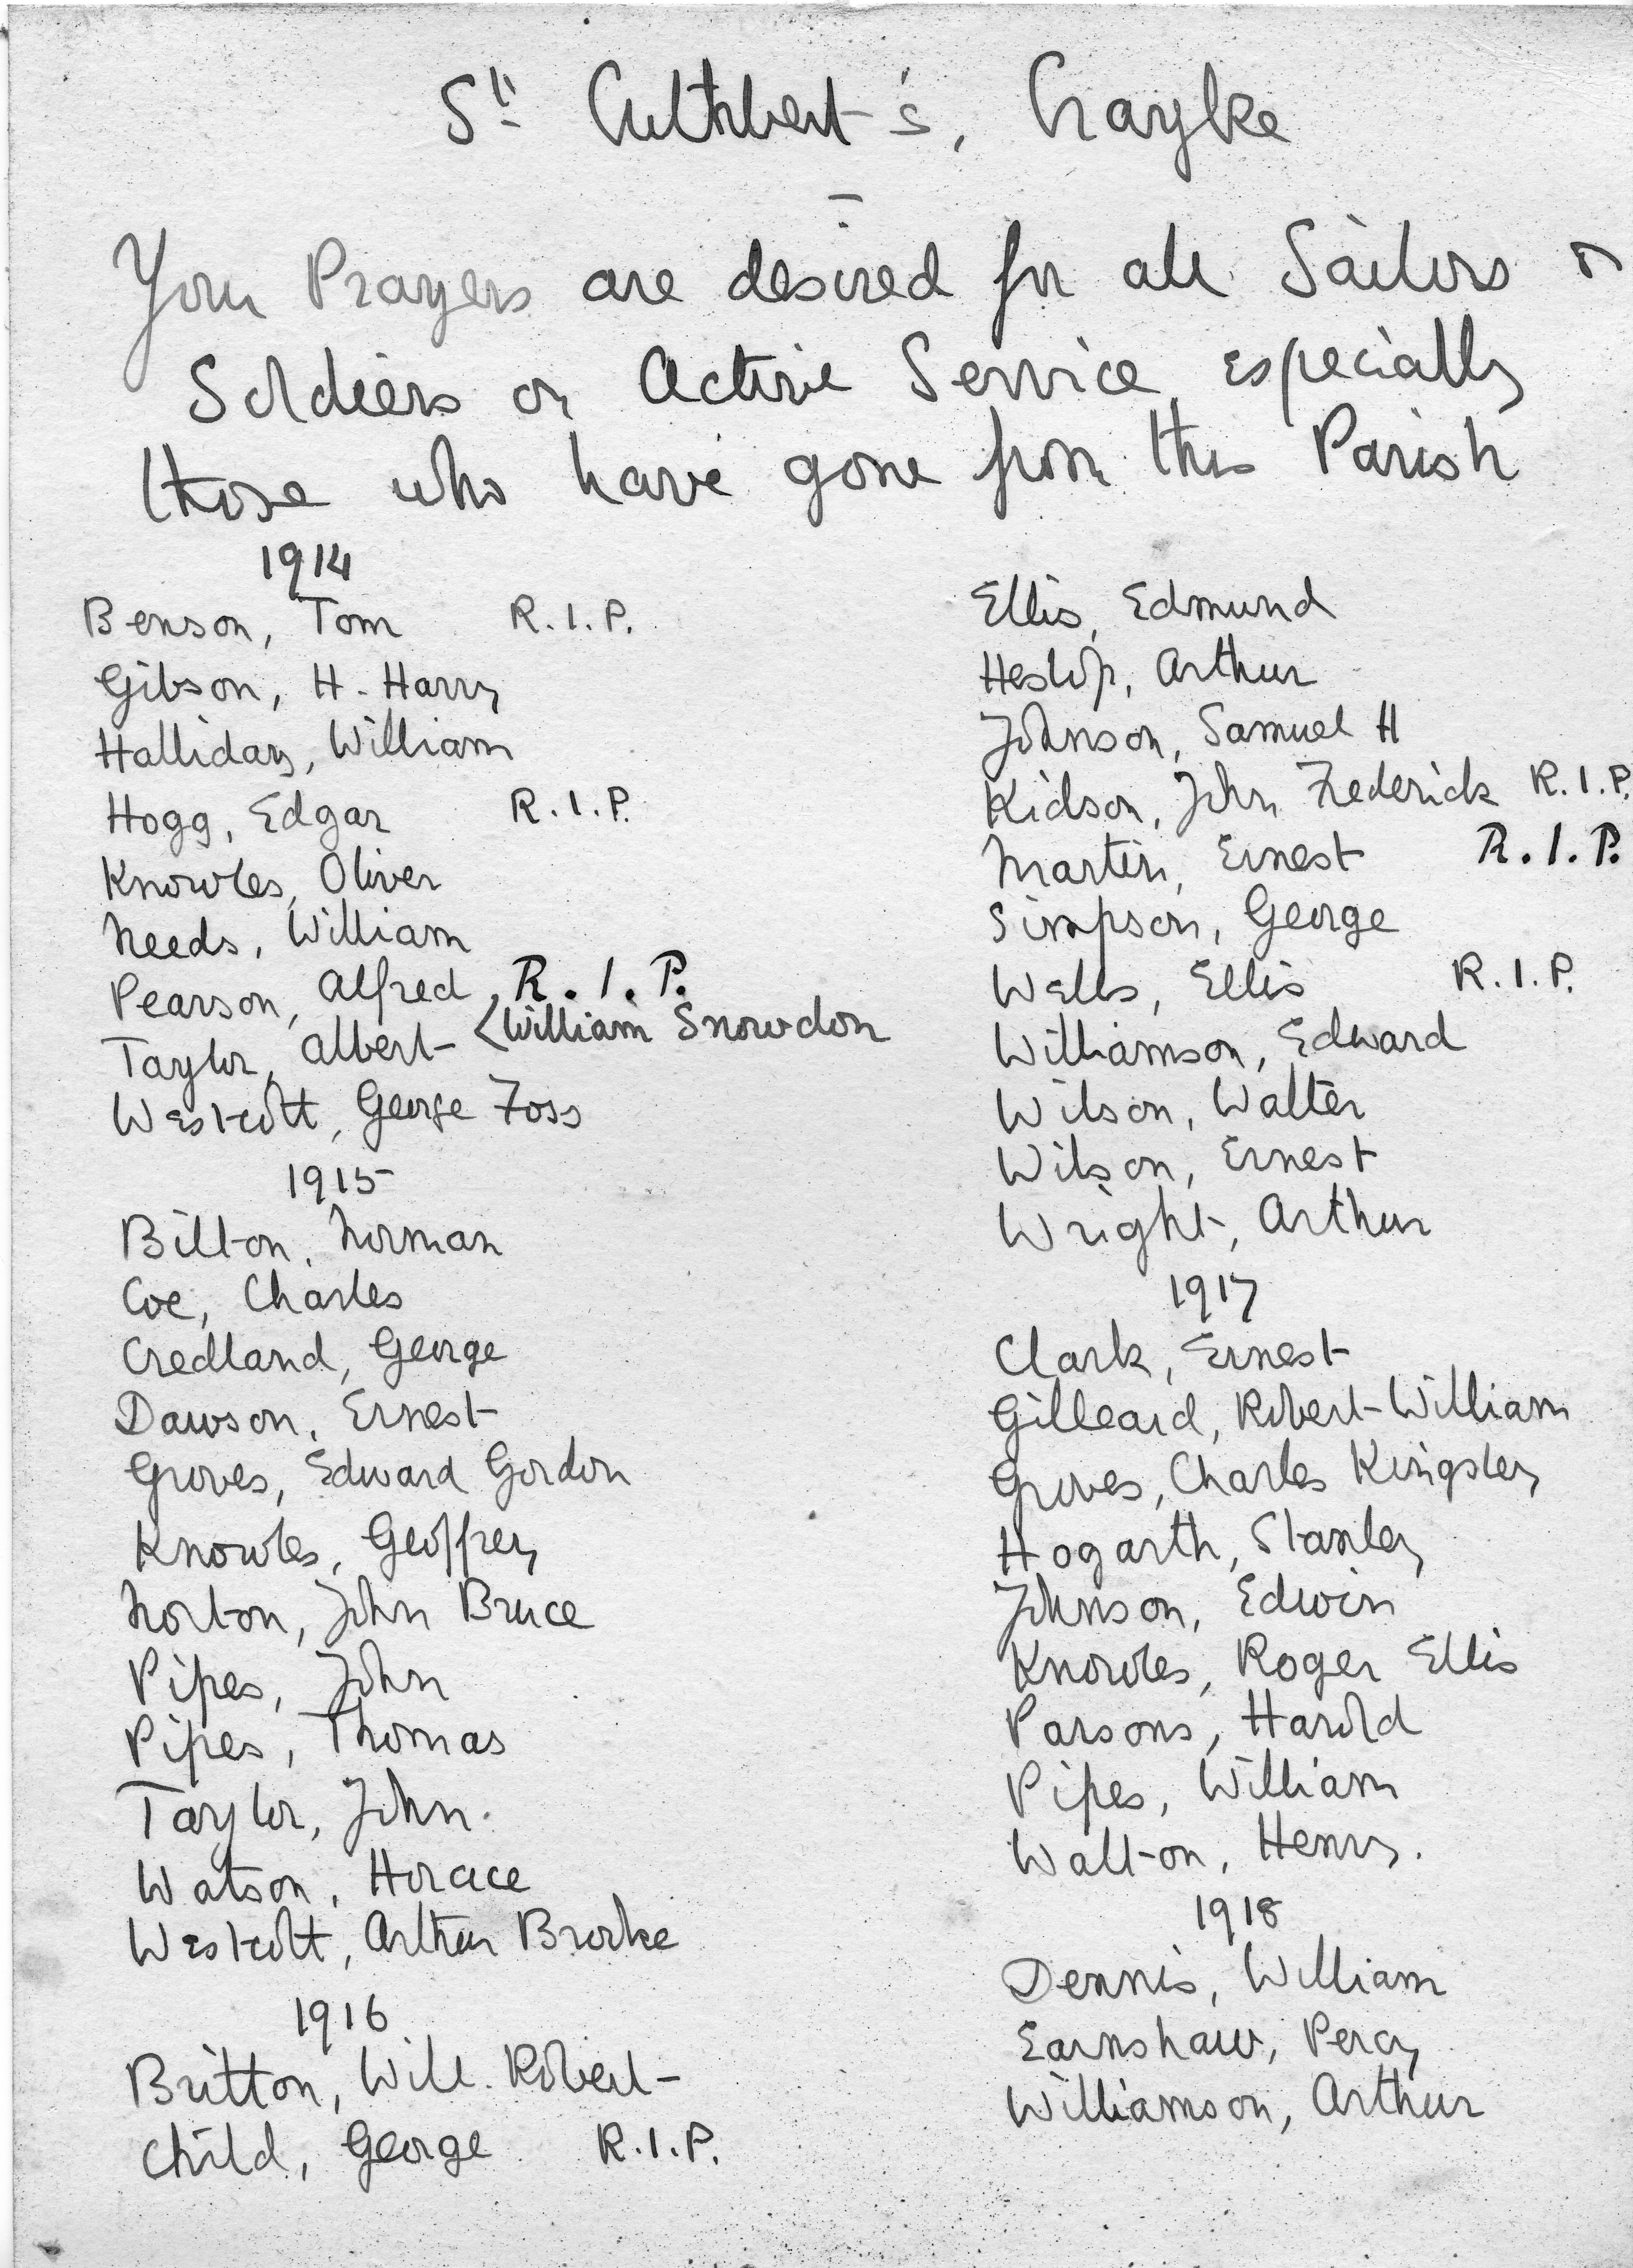 St. Cuthbert's, Crayke
Your Prayers are desired for all Sailors &
Soldiers on Active Service especially
those who have gone from this Parish
1914
Benson, Tom R.I.P.
Gibson, H. Harry
Halliday, William
Hogg, Edgar R.I.P.
Knowles, Oliver
Needs, William
Pearson, Alfred R.I.P.
Taylor, Albert < William Snowdon
Westcott, George Foss
1915
Bilton, Norman
Coe, Charles
Credland, George
Dawson, Ernest
Groves, Edward Gordon
Knowles, Geoffrey
Norton, John Bruce
Pipes, John
Pipes, Thomas
Taylor, John.
Watson, Horace
Westcott, Arthur Brooke
1916
Britton, Will. Robert
Child, George R.I.P.
Ellis, Edmund
Heslop, Arthur
Johnson, Samuel H
Kidson, John Frederick R.I.P.
Martin, Ernest R.I.P.
Simpson, George
Wells, Ellis R.I.P.
Williamson, Edward
Wilson, Walter
Wilson, Ernest
Wright, Arthur
1917
Clark, Ernest
Gilleard, Robert William
Groves, Charles Kingsley
Hogarth, Stanley
Johnson, Edwin
Knowles, Roger Ellis
Parsons, Harold
Pipes, William
Walton, Henry.
1918
Dennis, William
Earnshaw, Percy
Williamson, Arthur